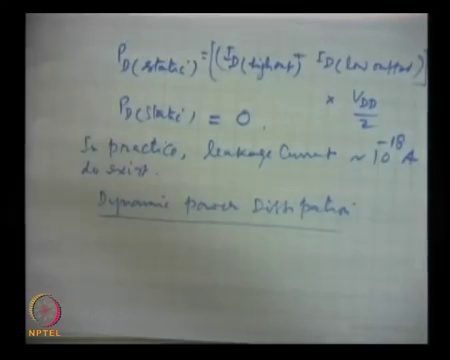 P_D(static) = [(I_D(high out) + I_D(low output)]
× V_DD/2
P_D(static) = 0.
In practice, leakage current ~ 10^-18 A
do exist.
Dynamic power Dissipation
NPTEL